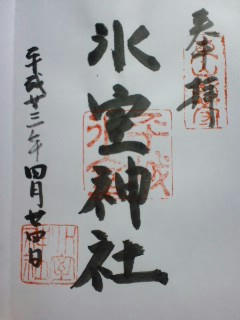 奉拝
氷室神社
平成廿三年四月廿四日